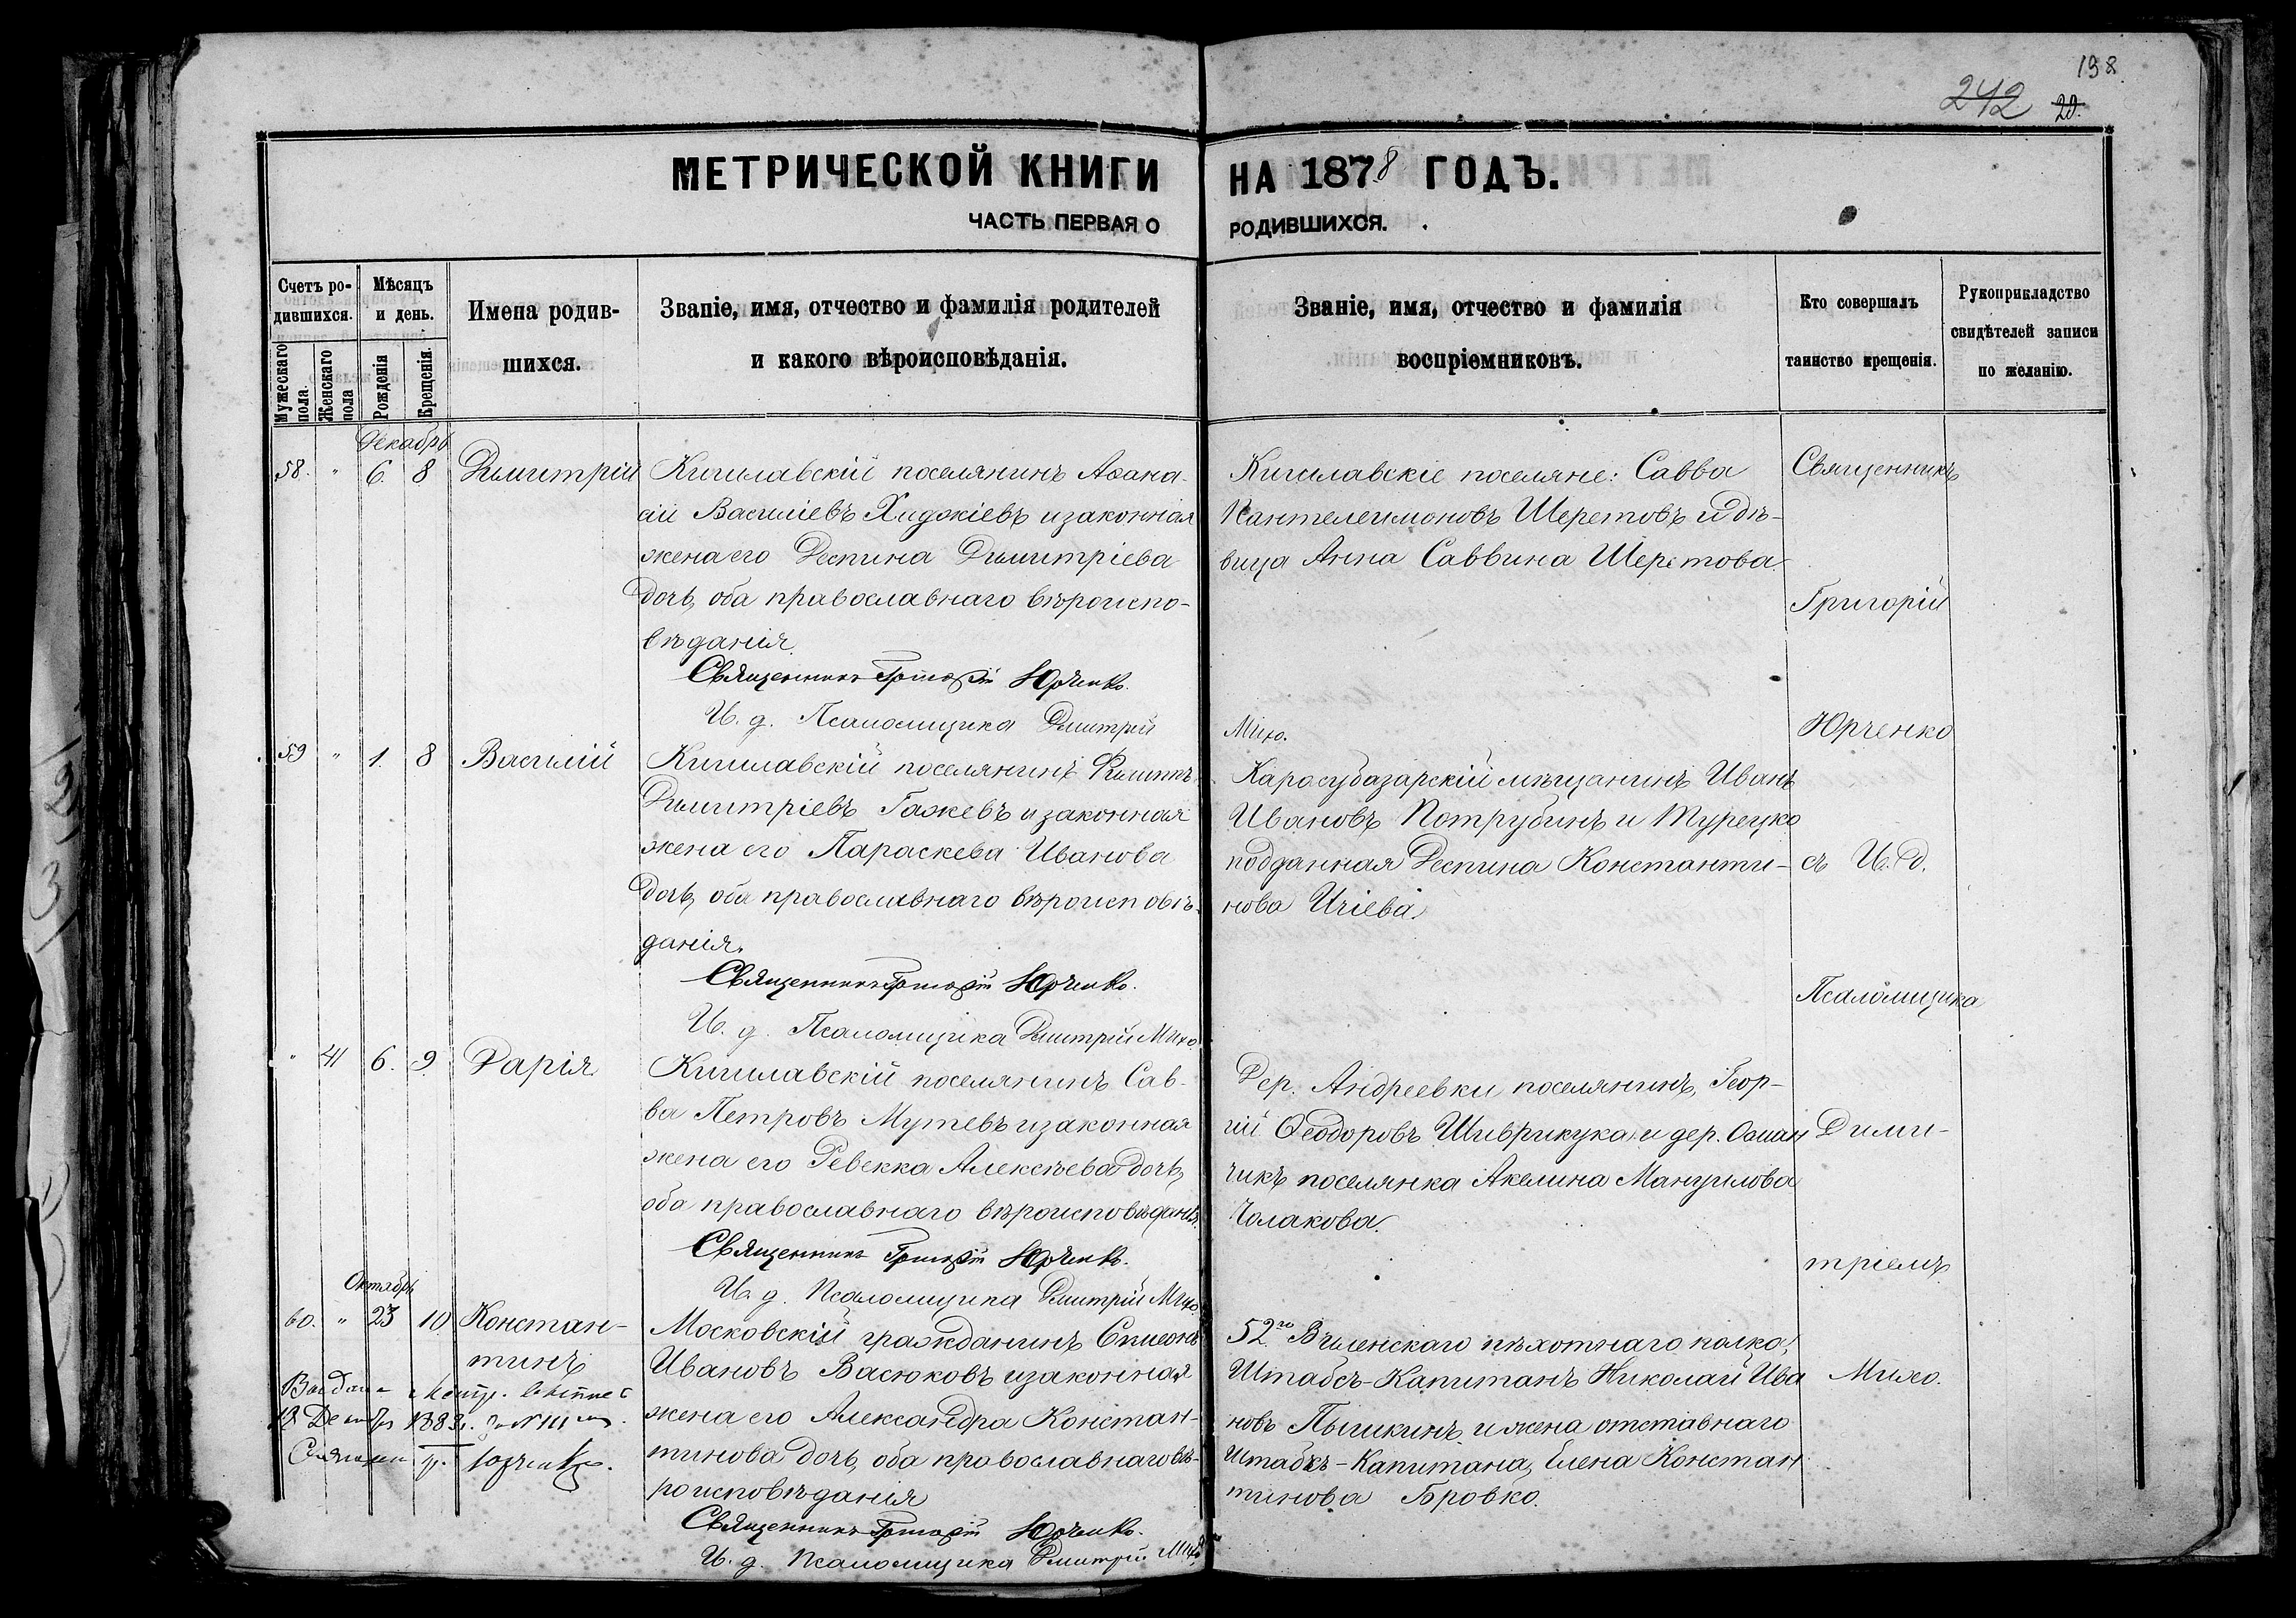 198
242 20.
МЕТРИЧЕСКОЙ КНИГИ НА 1878 ГОДЪ.
ЧАСТЬ ПЕРВАЯ О РОДИВШИХСЯ.
Счетъ ро-
дившихся.
Мужескаго пола.
Женскаго пола
Мѣсяцъ
и день.
Рожденія
Крещенія.
Имена родив-
шихся.
Званіе, имя, отчество и фамилія родителей
и какого вѣроисповѣданія.
Званіе, имя, отчество и фамилія
воспріемниковъ.
Кто совершалъ
таинство крещенія.
Рукоприкладство
свидѣтелей записи
по желанію.
Декабрь
58. " 6. 8 Димитрій
Кишлавскій поселянинъ Аѳана-
сій Василіевъ Хиджіевъ и законная
жена его Деспина Димитріева
дочь, оба православнаго вѣроиспо-
вѣданія.
Священникъ Григорій Юрченко.
И. д. Псаломщика Дмитрій
Михо.
Кишлавскіе поселяне: Савва
Пантелеимоновъ Шеретовъ и дѣ-
вица Анна Саввина Шеретова.
59 " 1. 8 Василій
Кишлавскій поселянинъ Филиппъ
Димитріевъ Гажевъ и законная
жена его Параскева Иванова
дочь, оба православнаго вѣроисповѣ-
данія.
Священникъ Григорій Юрченко.
И. д. Псаломщика Дмитрій Михо
Карасубазарскій мѣщанинъ Иванъ
Ивановъ Потрубинъ и Турецко
подданная Деспина Константи-
нова Ичіева.
" 41 6. 9. Дарія
Кишлавскій поселянинъ Сав-
ва Петровъ Мутевъ и законная
жена его Ревекка Алексѣева дочь,
оба православнаго вѣроисповѣданія.
Священникъ Григорій Юрченко.
И. д. Псаломщика Дмитрій Михо.
Дер. Андреевки поселянинъ, Геор-
гій Ѳеодоровъ Шиврикука и дер. Осман
чикъ поселянка Акелина Мануилова
Чолакова.
Октябрь
60. " 23 10 Констан-
тинъ
Московскій гражданинъ Симеонъ
Ивановъ Васюковъ и законная
жена его Александра Констан-
тинова дочь, оба православнаго вѣ-
роисповѣданія
Священникъ Григорій Юрченко.
И. д. Псаломщика Дмитрій Михо
52го Виленскаго пѣхотнаго полка,
Штабсъ-Капитанъ Николай Ива
новъ Пышкинъ и жена отставнаго
Штабсъ-Капитана, Елена Констан
тинова Бровко.
1883г.
Юрченко.
Священникъ
Григорій
Юрченко
съ И. д.
Псаломщика
Дими-
тріемъ
Михо.